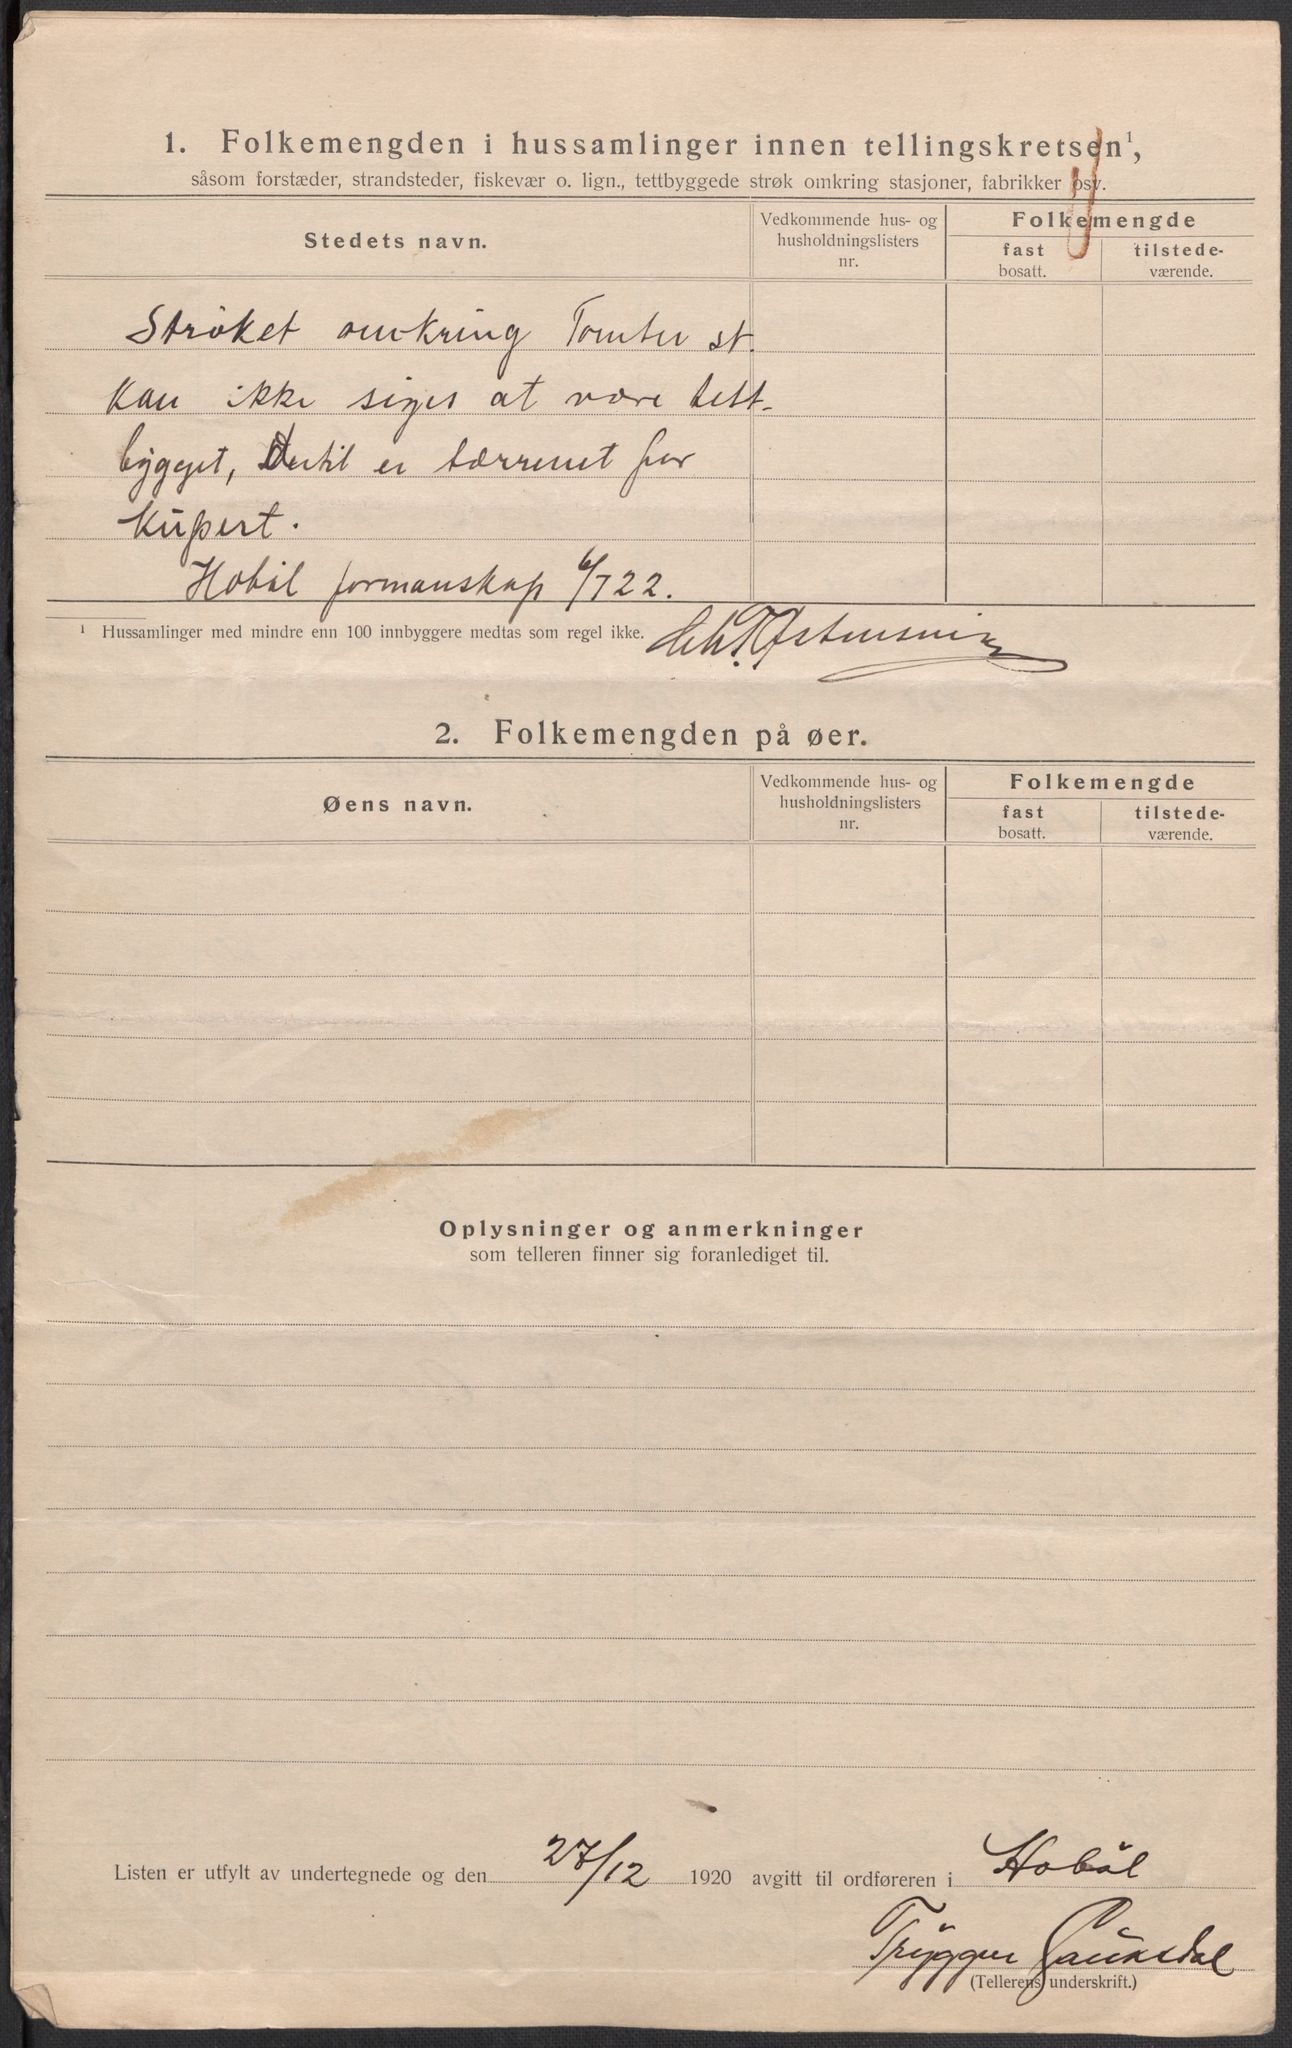 1. Folkemengden i hussamlinger innen tellingskretsen¹,
såsom forstæder, strandsteder, fiskevær o. lign., tettbyggede strøk omkring stasjoner, fabrikker osv.
Stedets navn.
Vedkommende hus- og
husholdningslisters
nr.
Folkemengde
fast
bosatt.
tilstede-
værende.
Strøket omkring Tomter st.
kan ikke siges at være tett-
bygget, Dertil er tærrenet for
kupert.
Hobøl formanskap 6/7 22.
¹ Hussamlinger med mindre enn 100 innbyggere medtas som regel ikke.
2. Folkemengden på øer.
Øens navn.
Vedkommende hus- og
husholdningslisters
nr.
Folkemengde
fast
bosatt.
tilstede-
værende.
Oplysninger og anmerkninger
som telleren finner sig foranlediget til.
Listen er utfylt av undertegnede og den 27/12 1920 avgitt til ordføreren i Hobøl
Trygger Gauksdal
(Tellerens underskrift.)